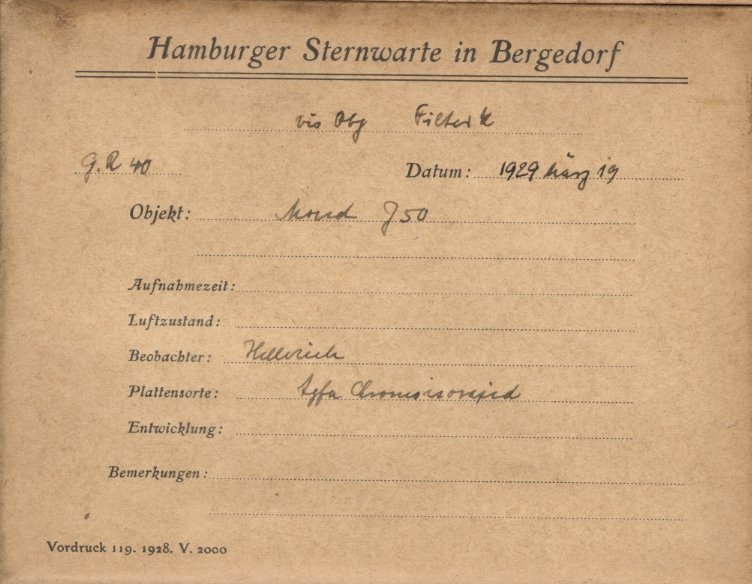 Hamburger Sternwarte in Bergedorf
vis Obj Filter K
G.R 40 Datum: 1929 März 19
Objekt: Mond J 50
Aufnahmezeit:
Luftzustand:
Beobachter:
Plattensorte: Agfa
Entwicklung:
Bemerkungen:
Vordruck 119. 1928. V. 2000